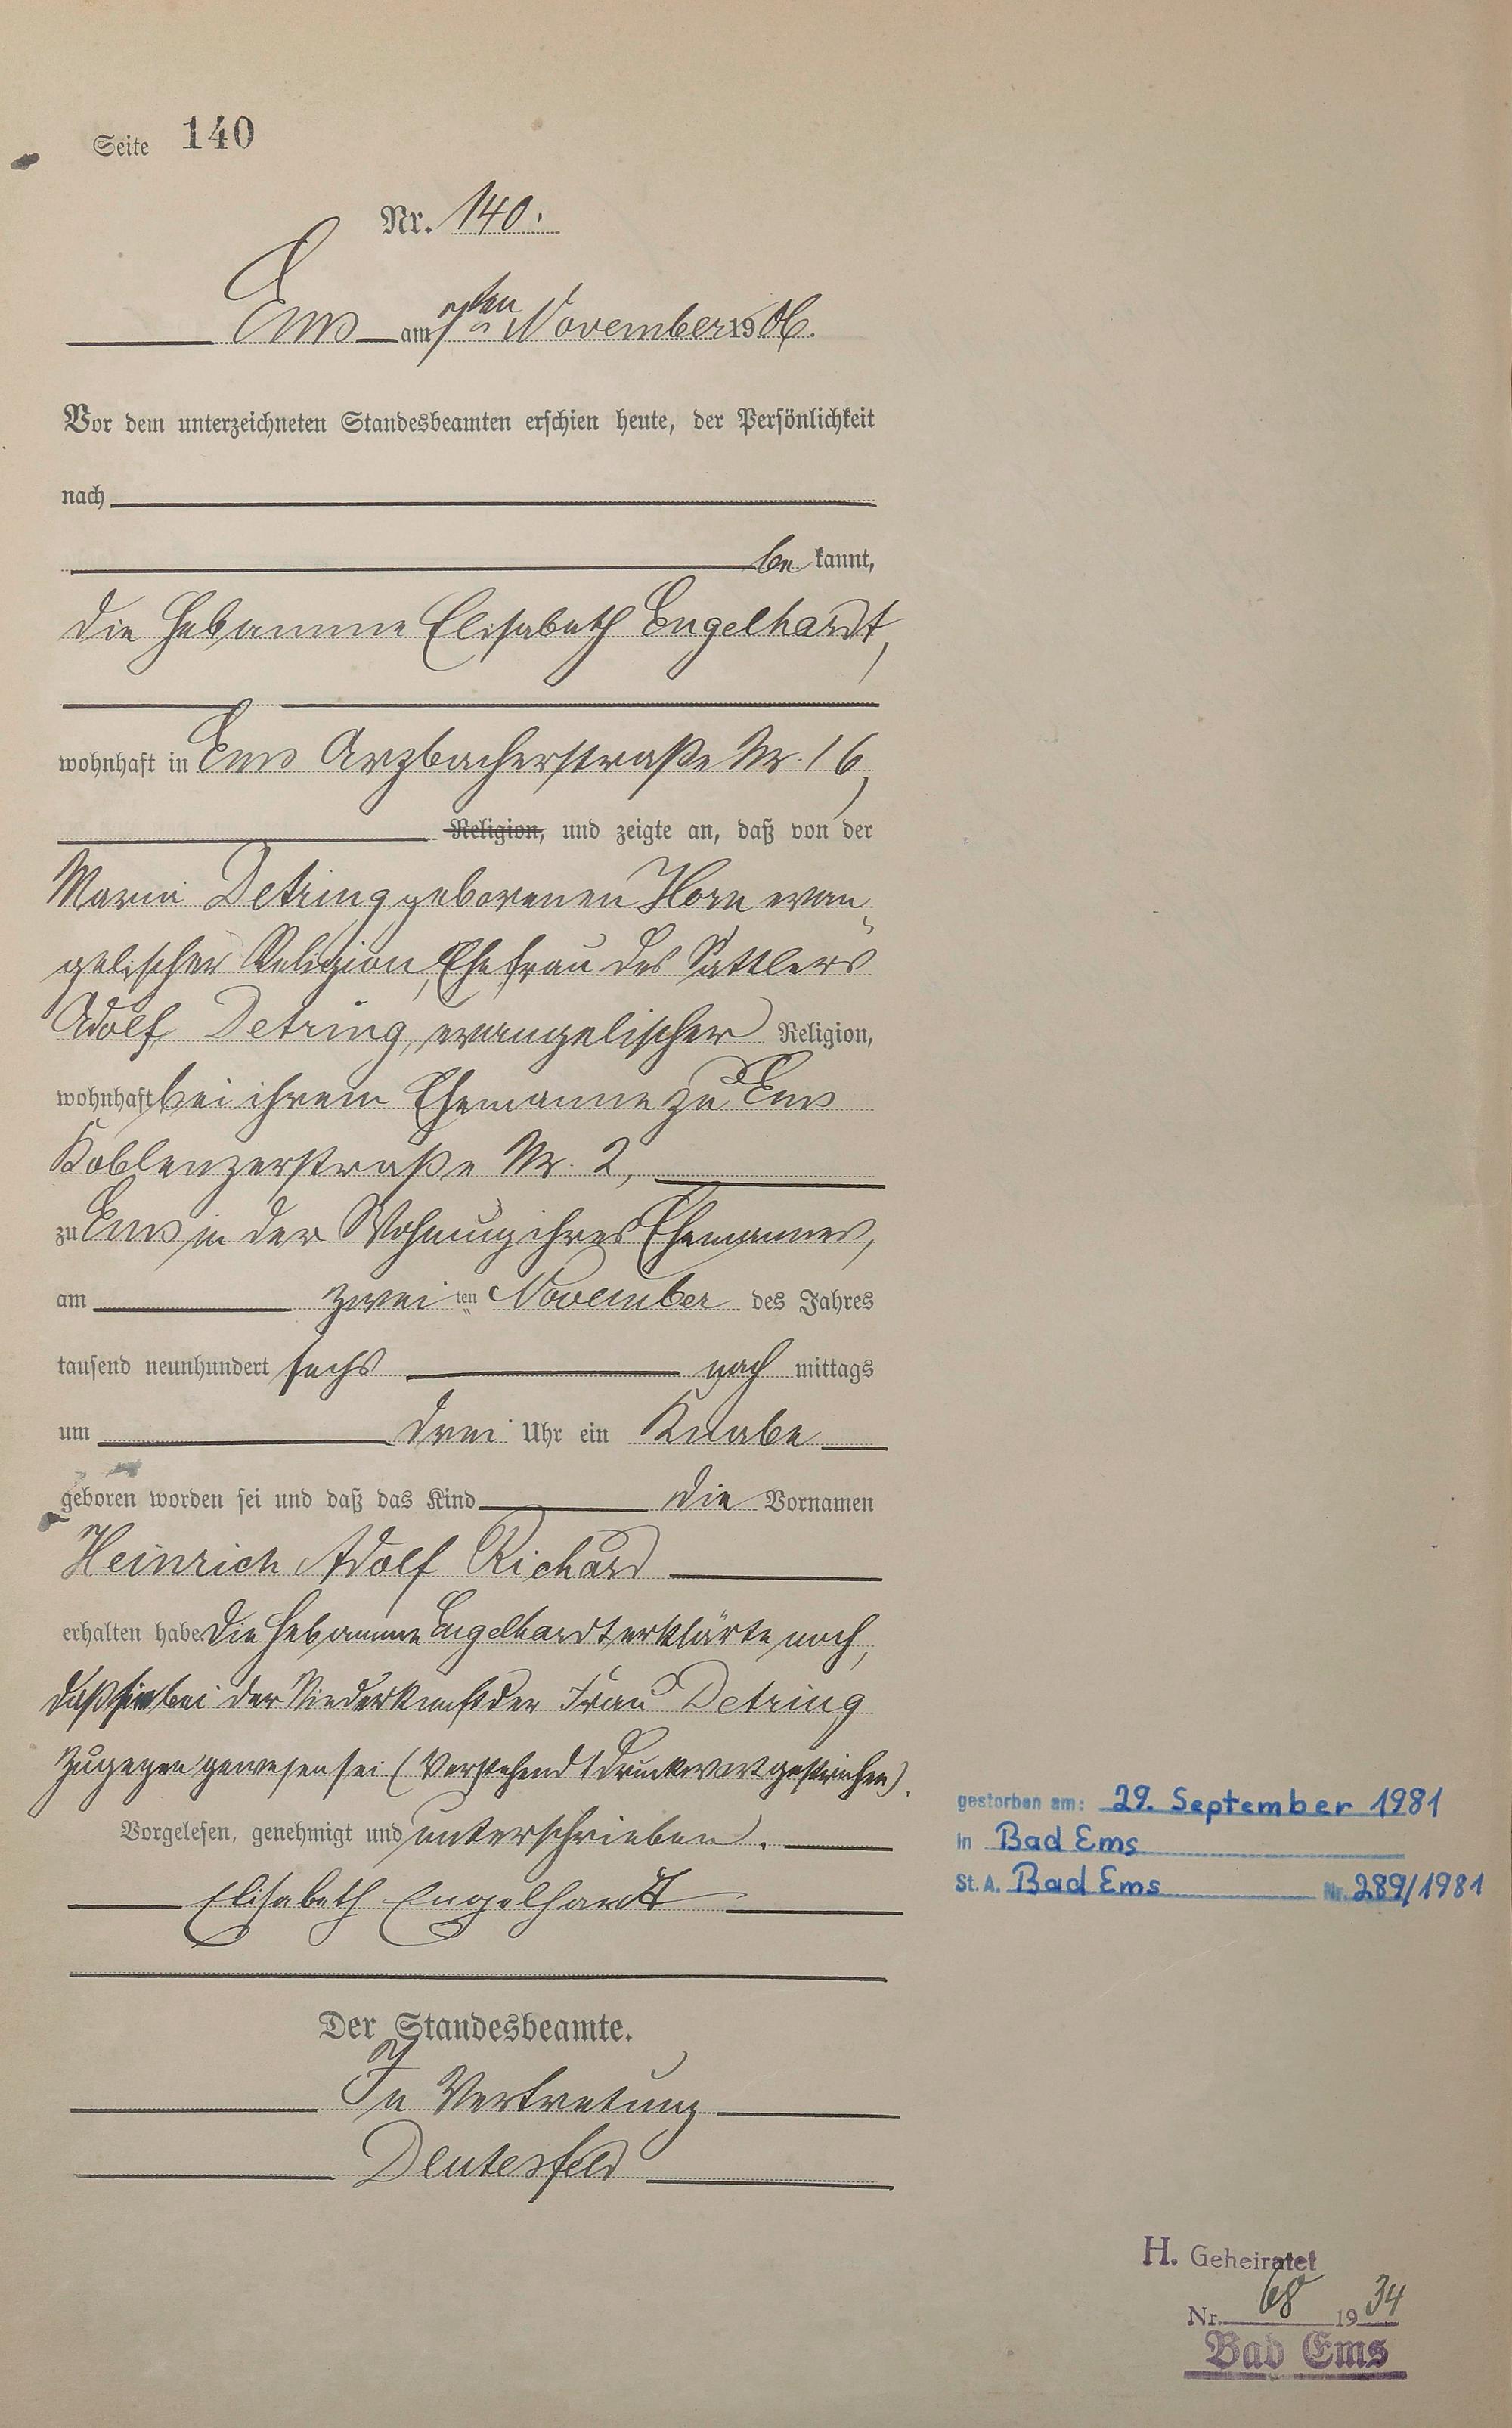 Seite 140
Nr. 140.
Ems am 7ten November 1906.
Vor dem unterzeichneten Standesbeamten erschien heute, der Persönlichkeit
nach
be kannt,
die Hebamme Elisabeth Engelhardt,
wohnhaft in Ems Arzbacherstraße Nr. 16,
Religion, und zeigte an, daß von der
Maria Detring geborenen Horn evan¬
gelischer Religion, Ehefrau des Sattlers
Adolf Detring, evangelischer Religion,
wohnhaft bei ihrem Ehemanne zu Ems
Koblenzerstraße Nr. 2,
zu Ems in der Wohnung ihres Ehemannes,
am zweiten November des Jahres
tausend neunhundert sechs nach mittags
um drei Uhr ein Knabe
geboren worden sei und daß das Kind die Vornamen
Heinrich Adolf Richard
erhalten habe. Die Hebamme Engelhardt erklärte noch,
daß sie bei der Niederkunft der Frau Detring
zugegen gewesen sei (Vorstehend 1 Druckwort gestrichen).
Vorgelesen, genehmigt und unterschrieben.
Elisabeth Engelhardt
Der Standesbeamte.
In Vertretung
Deutesfeld
gestorben am: 29. September 1981
in Bad Ems
St. A. Bad Ems Nr. 289/1981
H. Geheiratet
Nr. 68 1934
Bad Ems